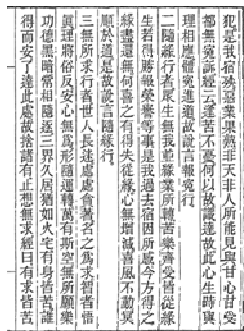 犯是我宿殃惡業果熟非天非人所能見與甘心甘受
都無冤訴經云逢苦不憂何以故識達故此心生時與
理相應體冤進道故說言報冤行
二隨緣行者眾生無我並緣業所轉苦樂齊受皆從緣
生若得勝報榮譽等事是我過去宿因所感今方得之
緣盡還無何喜之有得失從緣心無增減喜風不動冥
順於道是故說言隨緣行
三無所求行者世人長迷處處貪著名之為求智者悟
眞理將俗反安心無為形隨運轉萬有斯空無所願樂
功德黑暗常相隨逐三界久居猶如火宅有身皆苦誰
得而安了達此處故捨諸有止想無求經曰有求皆苦